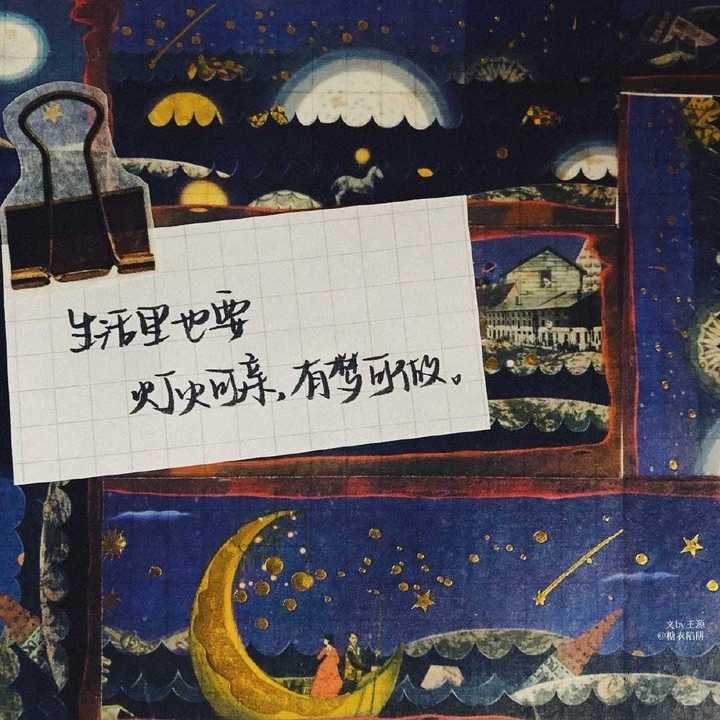 生活里也要
灯火可亲，有梦可做。
文by王源
@糖衣陷阱